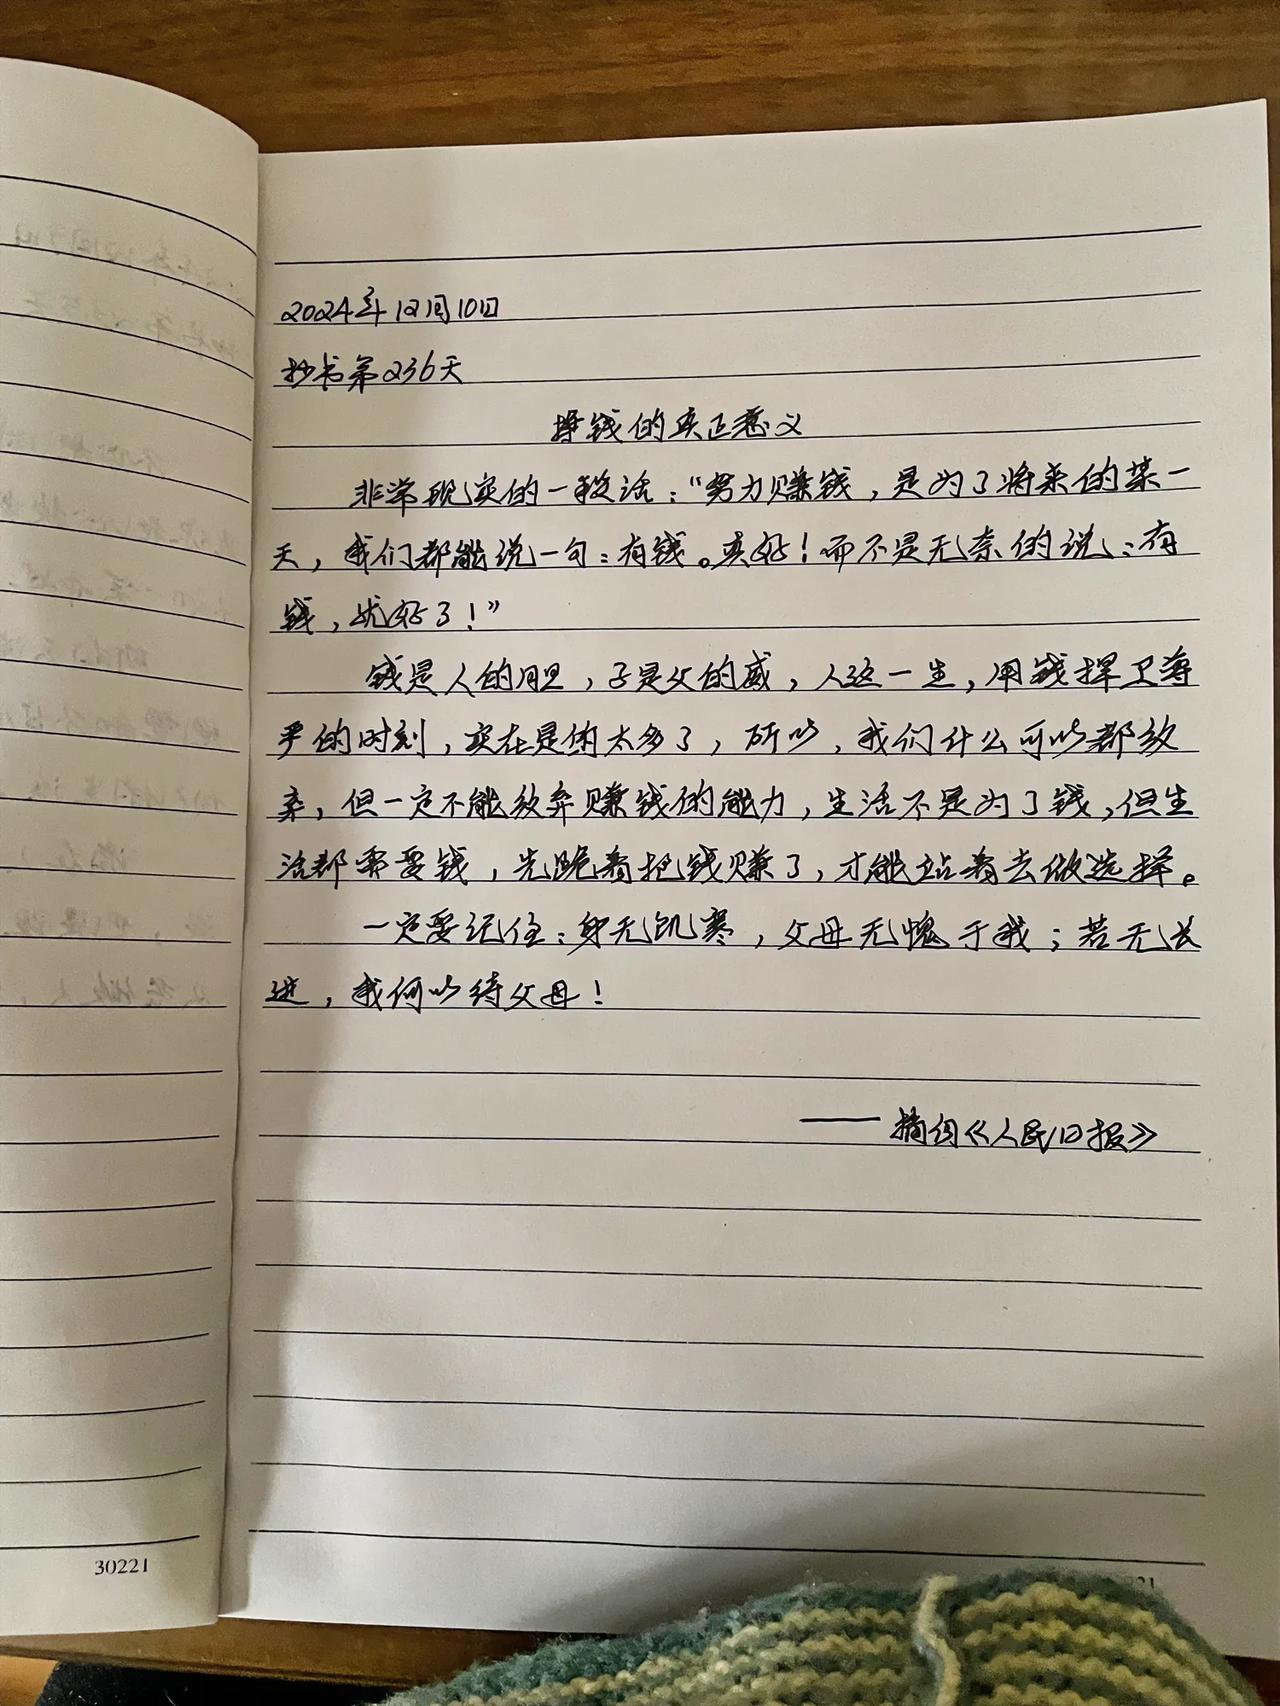 2024年12月10日
抄书第236天
挣钱的真正意义
非常现实的一段话:“努力赚钱,是为了将来的某一
天,我们都能说一句:有钱。真好!而不是无奈的说:有
钱,就好了!”
钱是人的胆,子是父的威,人这一生,用钱捍卫尊
严的时刻,实在是的太多了,所以,我们什么可以都放
弃,但一定不能放弃赚钱的能力,生活不是为了钱,但生
活都需要钱,先跪着把钱赚了,才能站着去做选择。
一定要记住:身无饥寒,父母无愧于我;若无长
进,我何以待父母!
——摘自《人民日报》
30221